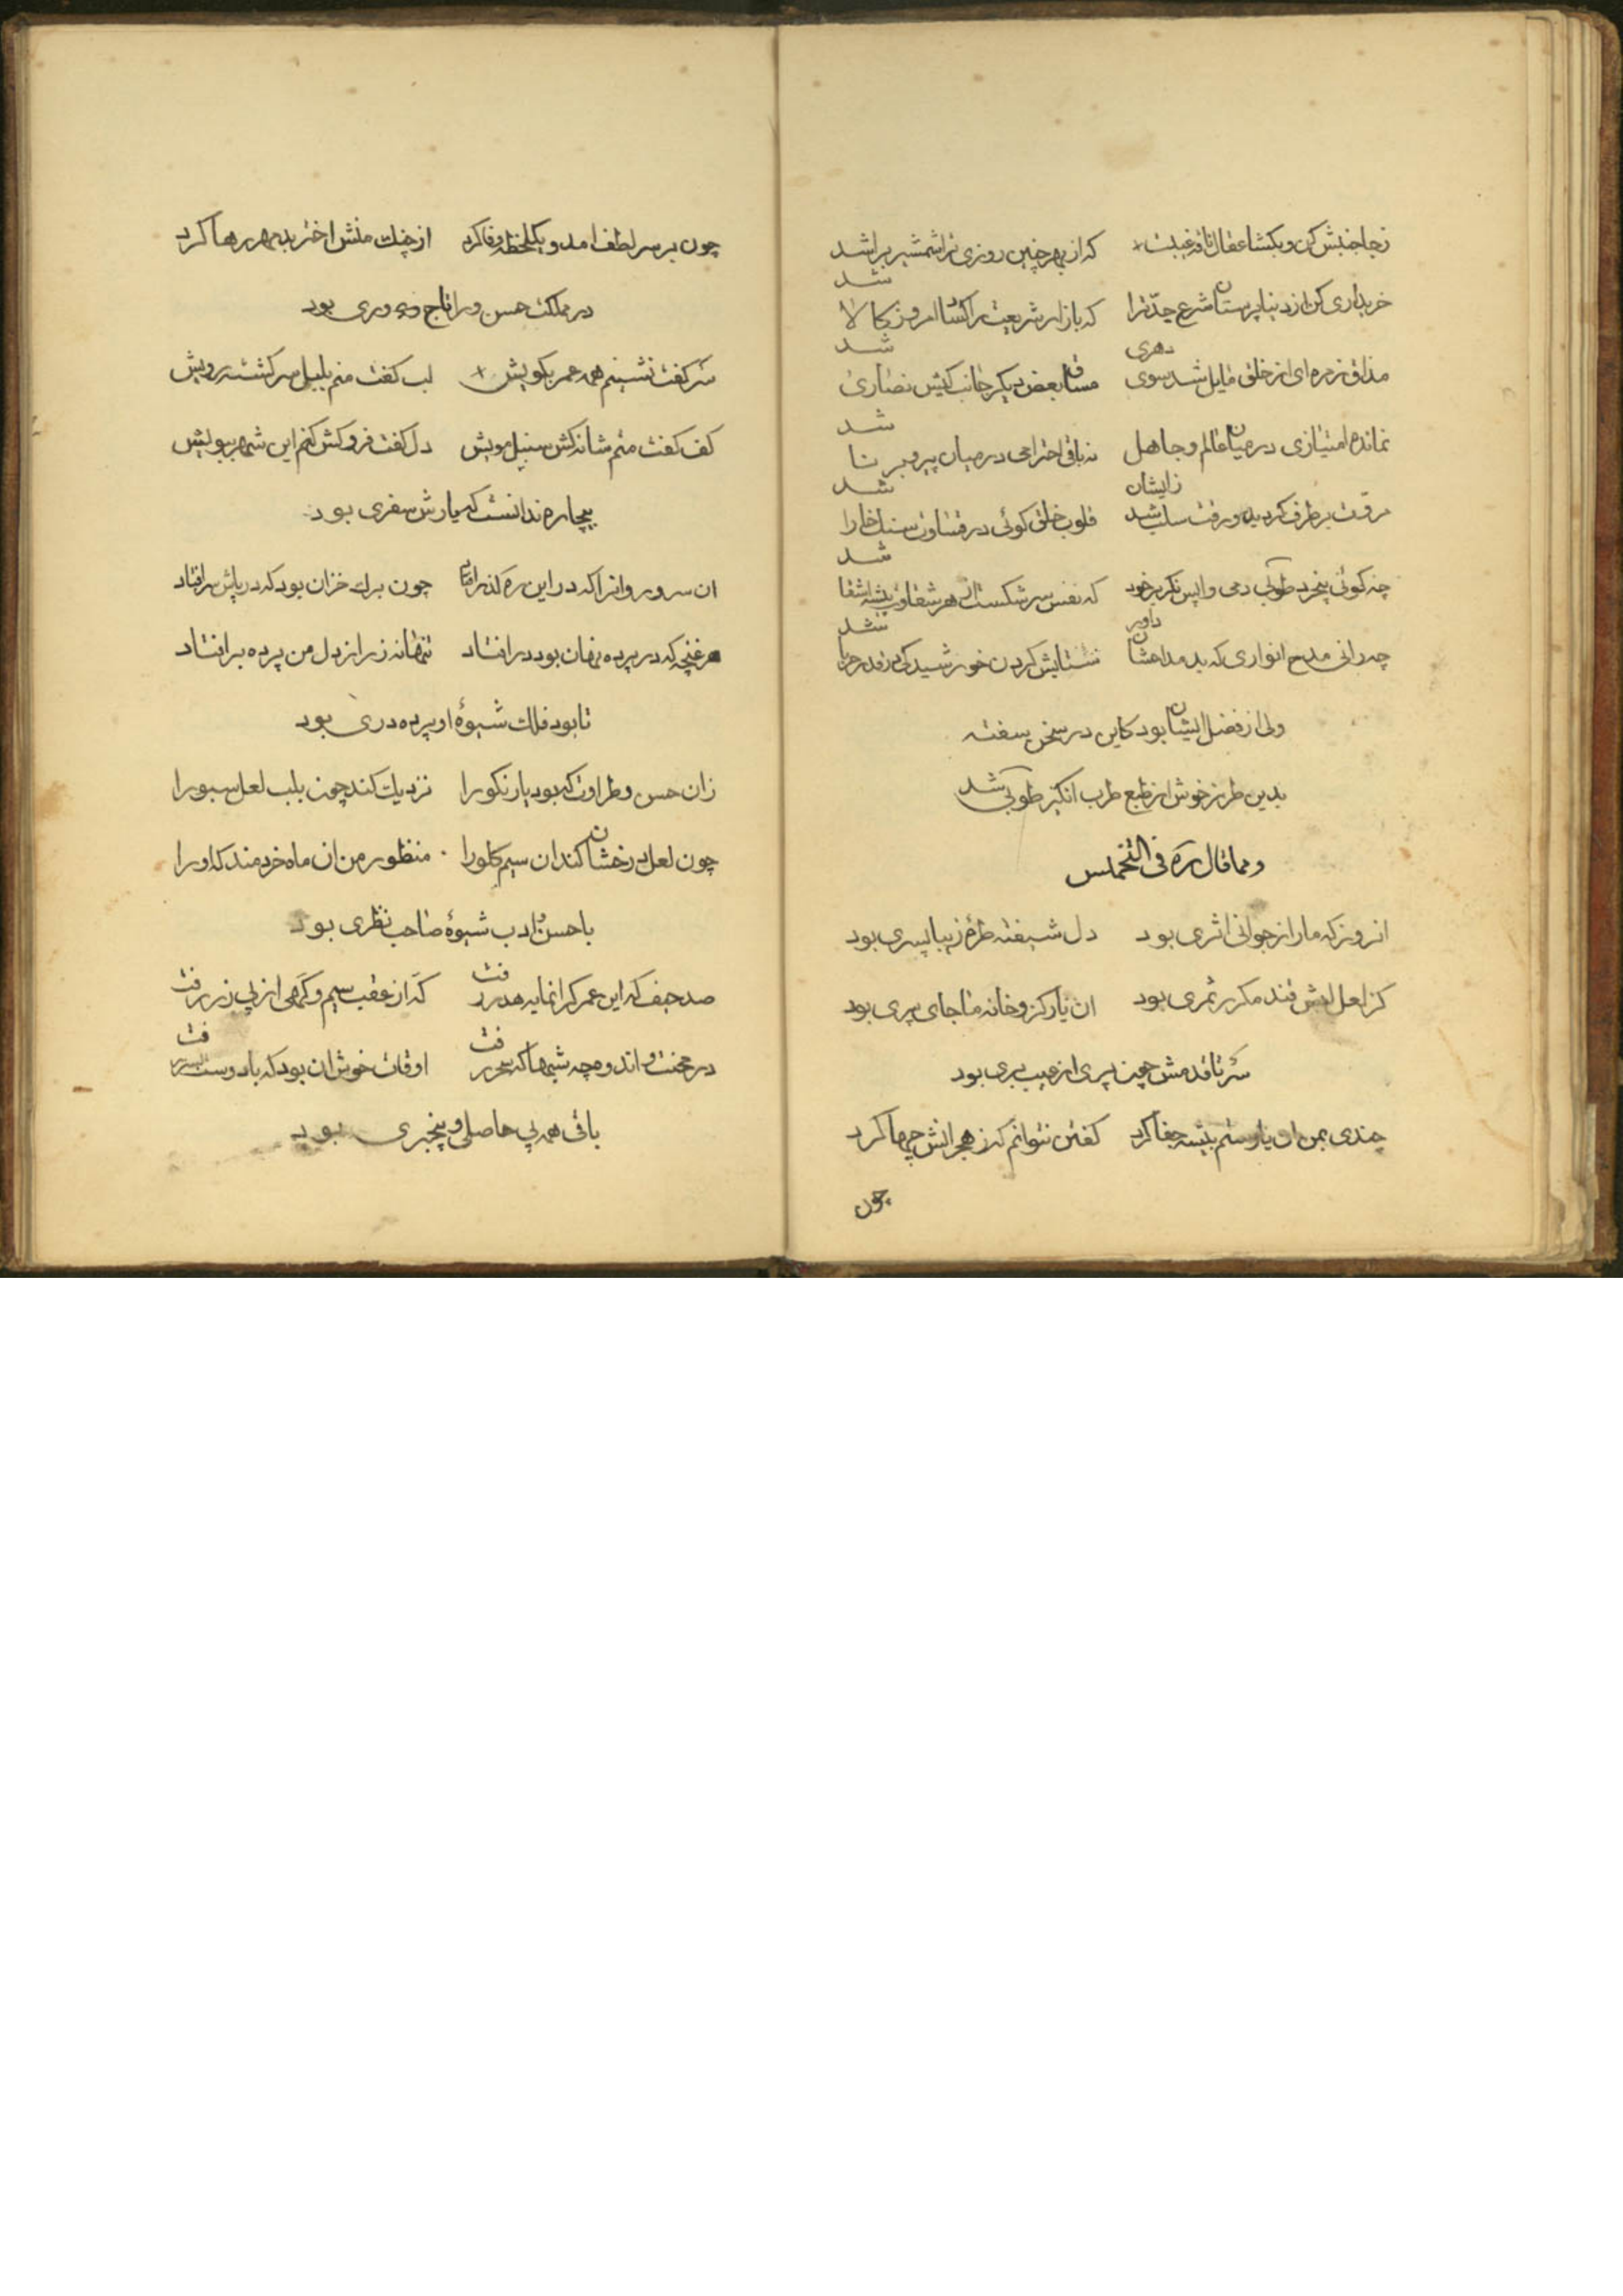 زجا جنبش کن و بکشا عقال ناقه غیبت که از بهر چنین روزی ترا شمشیر برا شد
خریداری کن از دنیا پرستان شرع جدّت را که بازار شریعت را کساد امروز کالا شد
مذاق زمره‌ای از خلق مایل شد سوی دهری مساق بعض دیگر جانب کیش نصاری شد
نمانده امتیازی در میان عالم و جاهل نه باقی احترامی در میان پیر و برنا شد
مروت برطرف گردیده و رفت سلب شد زایشان قلوب خلق کوئی در قساوت سنک خارا شد
چه کوئی بیخرد طوبی دمی واپس نکر بر خود که نفس سرشکست از هر شقاوت پیشه اشقا شد
چه رانی مدح انواری که بد مداحشان داور ستایش کردن خورشید کی در قدر حربا شد
ولی از فضل ایشان بود کاین در سخن سفته
بدین طرز خوش از طبع طرب انکیز طوبی شد
و مما قال ره فی التخمیس
انروز که ما را ز جوانی اثری بود دل شیفته طره زیبا پسری بود
کز لعل لبش قند مکرر ثمری بود ان یار کزو خانه ما جای پری بود
سر تا قدمش چون پری از عیب بری بود
چندی بمن ان یار ستم پیشه جفا کرد کفتن نتوانم که ز هجرانش چها کرد
چون
چون بر سر لطف امد و یکلحظه وفا کرد از چنک منش اختر بد مهر رها کرد
در مملکت حسن ورا تاج وری بود
سر کفت نشینم همه عمر بکویش لب کفت منم بلبل سرکشته رویش
کف کفت منم شانه کش سنبل مویش دل کفت فروکش کنم این شهر ببویش
بیچاره ندانست که یارش سفری بود
ان سرو روانرا که در این ره کذر افتاد چون برک خزان بود که در پاش سر افتاد
هر غنچه که در پرده نهان بود در افتاد تنها نه ز راز دل من پرده بر افتاد
تا بود فلک شیوهٔ او پرده دری بود
زان حسن و طراوت که بود یار نکو را نزدیک کند چون بلب لعل سبو را
چون لعل درخشان کند ان سیم کلو را منظور من ان ماه خردمند که او را
با حسن ادب شیوهٔ صاحب نظری بود
صد حیف که این عمر کرانمایه هدر رفت که از عقب سیم و کهی از پی زر رفت
در محنت و اندوه چه شبها که سحر رفت اوقات خوش ان بود که با دوست بسر رفت
باقی همه بی حاصلی و بیخبری بود